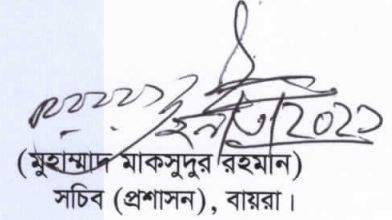 (মুহাম্মাদ মাকসুদুর রহমান)
সচিব (প্রশাসন), বায়রা।